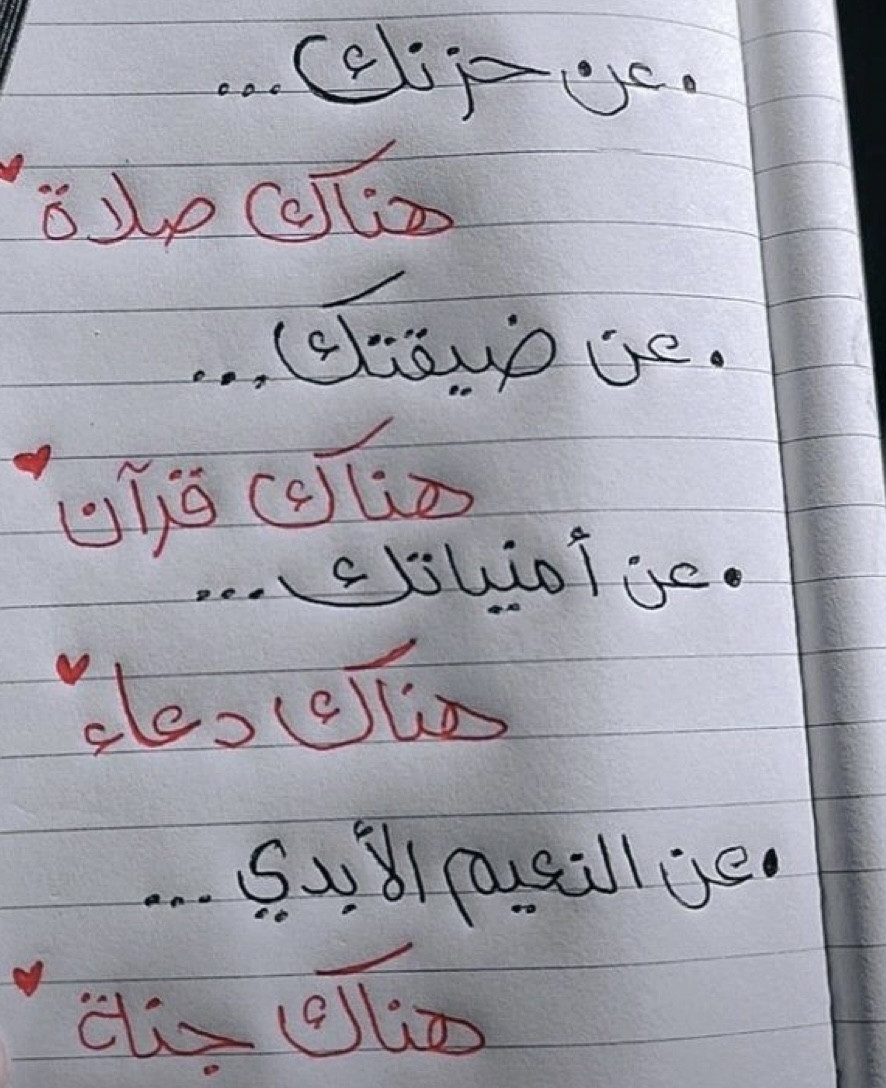 . عن حزنك...
هناك صلاة ♥
. عن ضيقتك...
هناك قرآن ♥
. عن أمنياتك...
هناك دعاء ♥
. عن النعيم الأبدي...
هناك جنة ♥